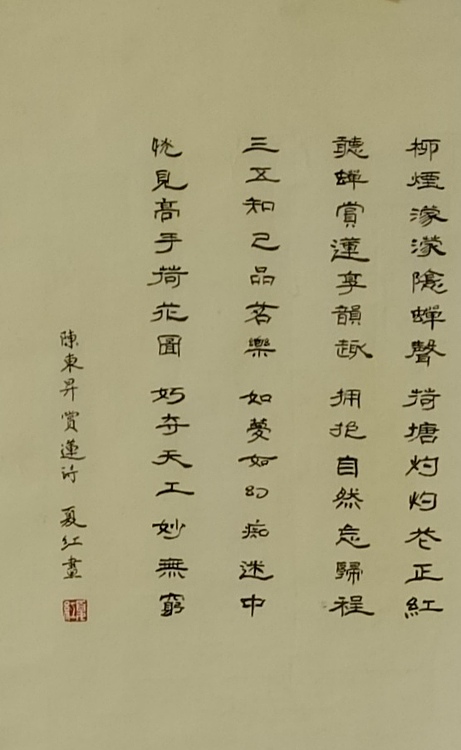 柳煙濛濛隱蟬聲 荷塘灼灼花正紅
聽蟬賞蓮享韻趣 拥抱自然忘歸程
三五知己品茗樂 如夢如幻痴迷中
恍見高手荷花圖 巧夺天工妙無窮
陳東昇賞蓮詩 夏紅畫